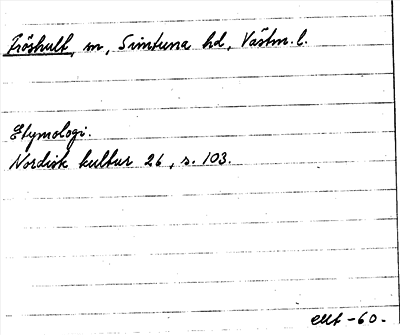 Fröshult, m, Simtuna hd, Västm. l.
Etymologi.
Nordisk kultur 26, s. 103.
-60-